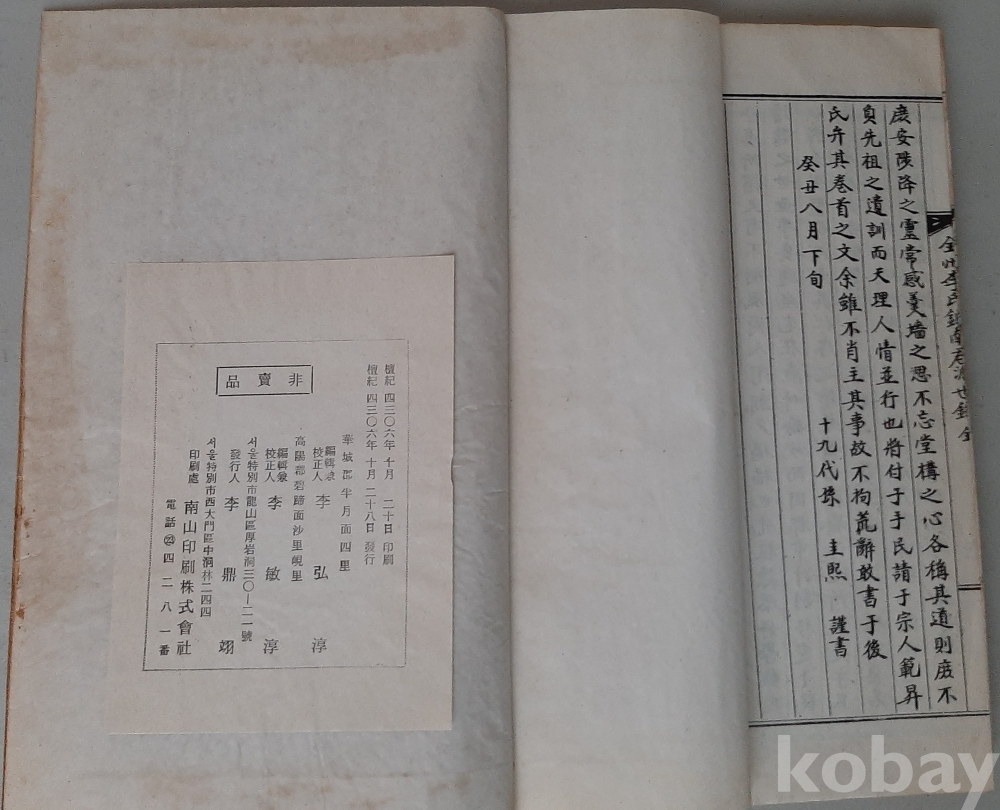 全州李氏鎭南君派世錄 全
庶安陟降之靈常感羹墻之思不忘堂構之心各稱其道則庶不
負先祖之遺訓而天理人情並行也將付于手民請于宗人範昇
氏弁其卷首之文余雖不肖主其事故不拘荒辭敢書于後
癸丑八月下旬 十九代孫 圭熙 謹書
非賣品
檀紀 四三〇六年 十月 二十日 印刷
檀紀 四三〇六年 十月 二十八日 發行
華城郡半月面四里
編輯兼校正人 李弘淳
高陽郡碧蹄面沙里峴里
編輯兼校正人 李敏淳
서울特別市龍山區厚岩洞三〇-二一號
發行人 李鼎翊
서울特別市西大門區中林洞一四四
印刷處 南山印刷株式會社
電話 ㉓ 四二八一番
kobay